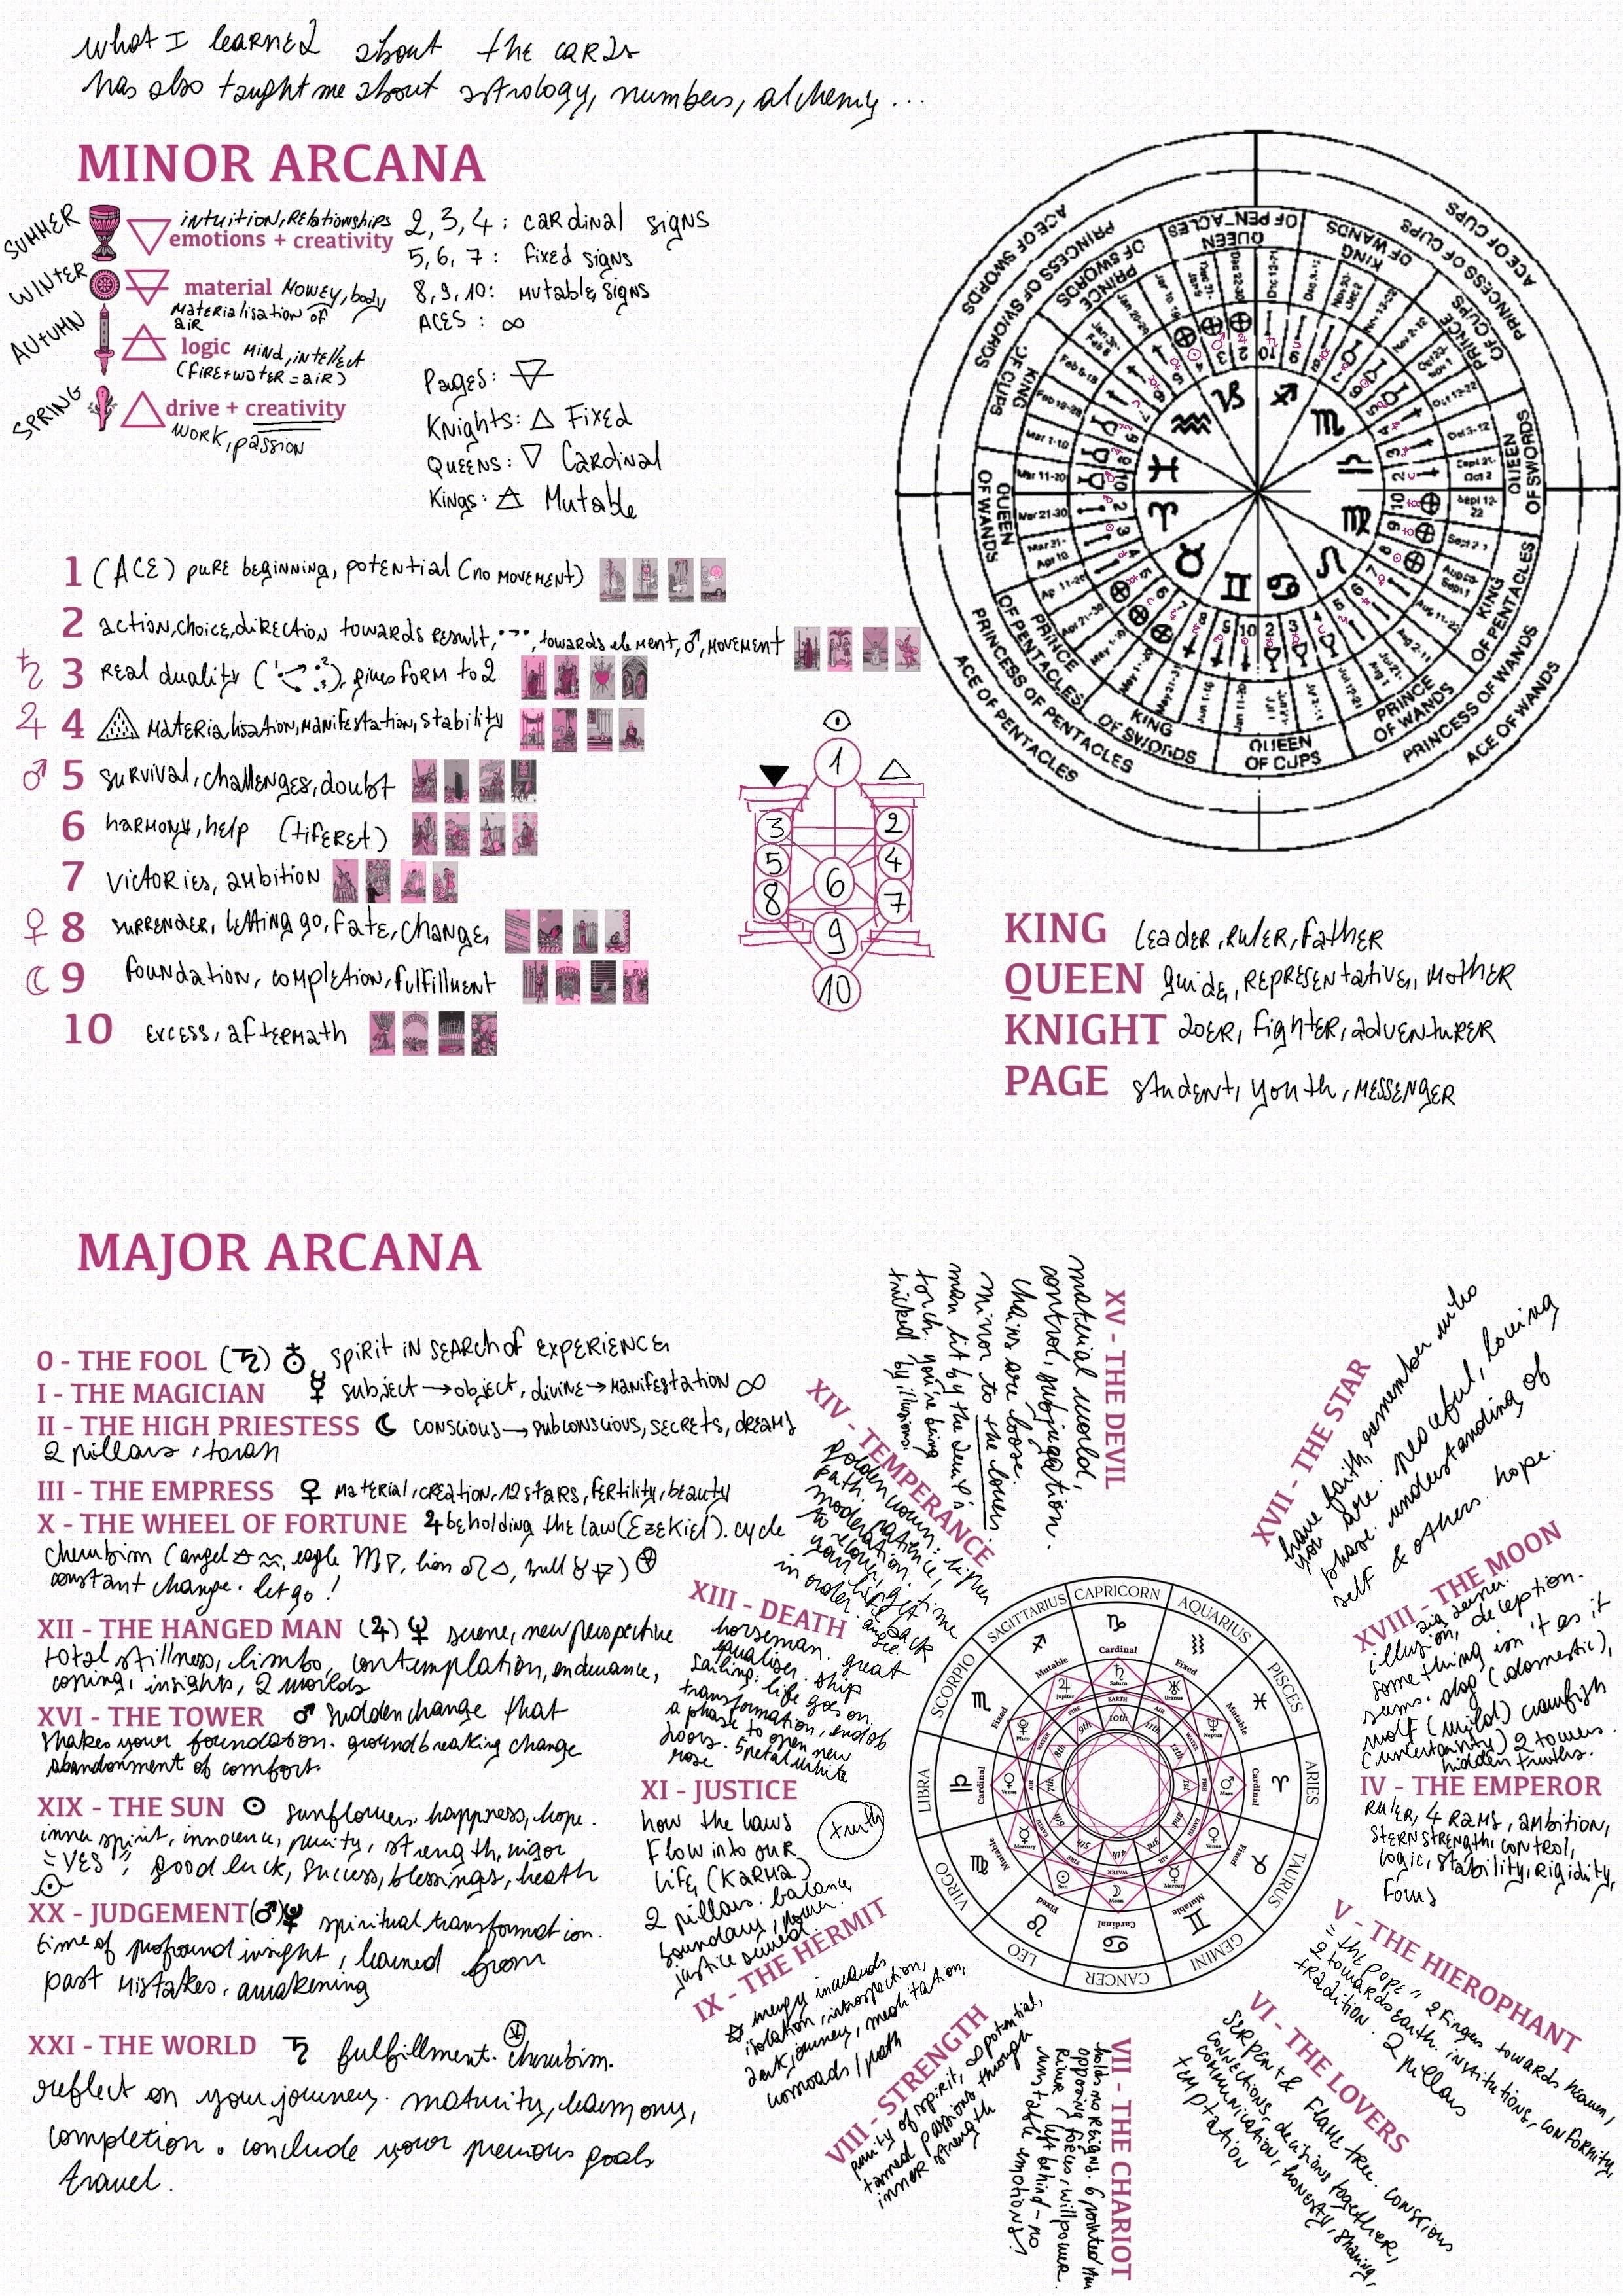 what I learned about the cards
has also taught me about astrology, numbers, alchemy...
MINOR ARCANA
SUMMER
intuition, Relationships
emotions + creativity
WINTER
material Money, body
Materialisation of
air
AUTUMN
logic Mind, intellect
(fire+water=air)
SPRING
drive + creativity
work, passion
2, 3, 4: cardinal signs
5, 6, 7: fixed signs
8, 9, 10: mutable signs
ACES: ∞
Pages: 🜃
Knights: △ Fixed
Queens: ▽ Cardinal
Kings: 🜁 Mutable
1 (ACE) pure beginning, potential (no movement)
2 action, choice, direction towards result, towards element, ♂, movement
♄ 3 Real duality gives form to 2
♃ 4 Materialisation, manifestation, stability
♂ 5 survival, challenges, doubt
6 harmony, help (tiferet)
7 victories, ambition
♀ 8 surrender, letting go, fate, change
☾ 9 foundation, completion, fulfillment
10 excess, aftermath
1
3 2
5 4
6
8 7
9
10
ACE OF SWORDS
PRINCESS OF SWORDS
PRINCE OF SWORDS
QUEEN OF PENTACLES
KING OF WANDS
ACE OF CUPS
PRINCESS OF CUPS
PRINCE OF CUPS
QUEEN OF SWORDS
KING OF PENTACLES
ACE OF WANDS
PRINCESS OF WANDS
PRINCE OF WANDS
QUEEN OF CUPS
KING OF SWORDS
ACE OF PENTACLES
PRINCESS OF PENTACLES
PRINCE OF PENTACLES
QUEEN OF WANDS
KING OF CUPS
KING leader, ruler, father
QUEEN guide, representative, mother
KNIGHT doer, fighter, adventurer
PAGE student, youth, messenger
MAJOR ARCANA
0 - THE FOOL (♄) ♁ spirit in search of experience
I - THE MAGICIAN ☿ subject → object, divine → manifestation ∞
II - THE HIGH PRIESTESS ☾ conscious → subconscious, secrets, dreams
2 pillars, torah
III - THE EMPRESS ♀ material, creation, 12 stars, fertility, beauty
X - THE WHEEL OF FORTUNE ♃ beholding the law (Ezekiel). cycle
cherubim (angel 🜁 ♒, eagle ♏ ▽, lion ♌ △, bull ♉ 🜃)
constant change. let go!
XII - THE HANGED MAN (♃) ♆ serene, new perspective
total stillness, limbo, contemplation, endurance,
coming insights, 2 worlds
XVI - THE TOWER ♂ sudden change that
shakes your foundation. groundbreaking change
abandonment of comfort.
XIX - THE SUN ☉ sunflower, happiness, hope.
inner spirit, innocence, purity, strength, vigor
"YES"; good luck, success, blessings, health
XX - JUDGEMENT (♂) spiritual transformation.
time of profound insight, learned from
past mistakes, awakening
XXI - THE WORLD ♄ fulfillment. cherubim.
reflect on your journey. maturity, harmony,
completion. conclude your previous goals
travel.
XV - THE DEVIL
material world,
control, subjugation.
chains are loose.
mirror to the lovers.
man lit by the devil's
torch. you're being
tricked by illusions.
XIV - TEMPERANCE
golden crown: higher
path. patience,
moderation. time
to get back
your life
in order. angel.
XIII - DEATH
horseman. great
equaliser. ship
sailing: life goes on.
transformation, end of
a phase to open new
doors. 5 petal white
rose
XI - JUSTICE
how the laws
flow into our
life (Karma)
2 pillars. balance,
boundary, power.
justice served.
truth
IX - THE HERMIT
energy inwards
isolation, introspection,
dark journey, meditation,
crossroads / path
VIII - STRENGTH
purity of spirit, potential,
tamed passions through
inner strength
VII - THE CHARIOT
holds no reigns. 6 pointed
opposing forces, willpower.
River left behind - no
unstable emotions
VI - THE LOVERS
serpent & flame tree. conscious
connections, decisions together,
communication, honesty, sharing,
temptation
V - THE HIEROPHANT
= the pope " 2 fingers towards heaven,
2 towards earth. institutions, conformity,
tradition. 2 pillars
IV - THE EMPEROR
ruler, 4 rams, ambition,
stern strength, control,
logic, stability, rigidity,
focus
XVIII - THE MOON
illusion, deception.
something isn't as it
seems. dog (domestic),
wolf (wild) crawfish
(uncertainty) 2 towers.
hidden truths.
XVII - THE STAR
have faith, remember who
you are. peaceful, loving
phase. understanding of
self & others. hope.
SAGITTARIUS
CAPRICORN
AQUARIUS
PISCES
ARIES
TAURUS
GEMINI
CANCER
LEO
VIRGO
LIBRA
SCORPIO